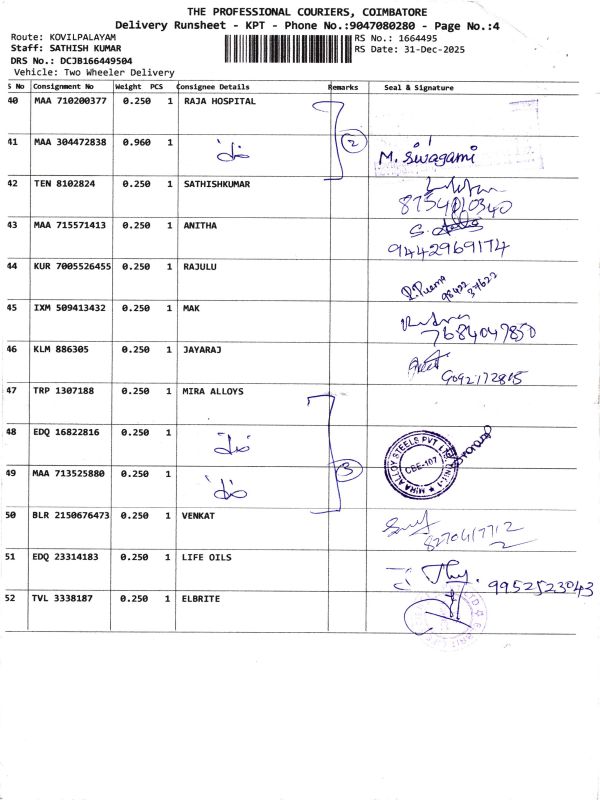 THE PROFESSIONAL COURIERS, COIMBATORE
Delivery Runsheet - KPT - Phone No.:9047080280 - Page No.:4
Route: KOVILPALAYAM
RS No.: 1664495
Staff: SATHISH KUMAR
RS Date: 31-Dec-2025
DRS No.: DCJB166449504
Vehicle: Two Wheeler Delivery
S No Consignment No Weight PCS Consignee Details Remarks Seal & Signature
40 MAA 710200377 0.250 1 RAJA HOSPITAL
41 MAA 304472838 0.960 1 2 M. Sivagami
42 TEN 8102824 0.250 1 SATHISHKUMAR
8754010340
43 MAA 715571413 0.250 1 ANITHA
9442969174
44 KUR 7005526455 0.250 1 RAJULU
45 IXM 509413432 0.250 1 MAK
7684047850
46 KLM 886305 0.250 1 JAYARAJ
47 TRP 1307188 0.250 1 MIRA ALLOYS
48 EDQ 16822816 0.250 1
49 MAA 713525880 0.250 1 3
MIRA ALLOY STEELS PVT LTD UNIT-1
CBE-107
50 BLR 2150676473 0.250 1 VENKAT
51 EDQ 23314183 0.250 1 LIFE OILS
9952523043
52 TVL 3338187 0.250 1 ELBRITE